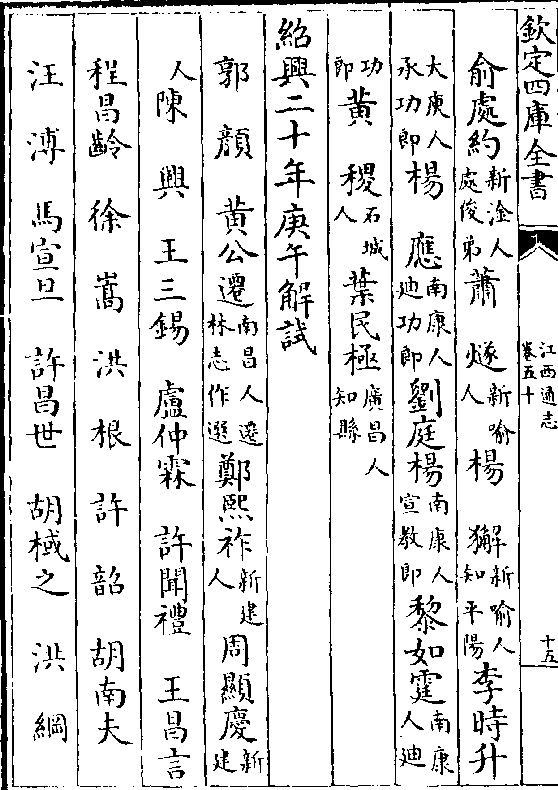 欽定四庫全書 江西通志卷五十 十五
俞處約新淦人處俊弟蕭燧新喻人楊獬新喻人知平陽李時升
大庾人承功郎楊應南康人迪功郎劉庭楊南康人宣教郎黎如霆南康人迪
功郎黃稷石城人葉民極廣昌人知縣
紹興二十年庚午解試
郭顔 黃公遷南昌人遷林志作選鄭熙祚新建人周顯慶新建
人陳興 王三錫 盧仲霖 許聞禮 王昌言
程昌齡 徐嵩 洪根 許韶 胡南夫
汪溥 馬宣旦 許昌世 胡棫之 洪綱